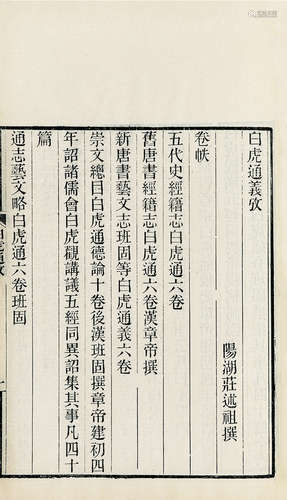 白虎通義攷
陽湖莊述祖撰
卷帙
五代史經籍志白虎通六卷
舊唐書經籍志白虎通六卷漢章帝撰
新唐書藝文志班固等白虎通義六卷
崇文總目白虎通德論十卷後漢班固撰章帝建初四
年詔諸儒會白虎觀講議五經同異詔集其事凡四十
篇
通志藝文略白虎通六卷班固